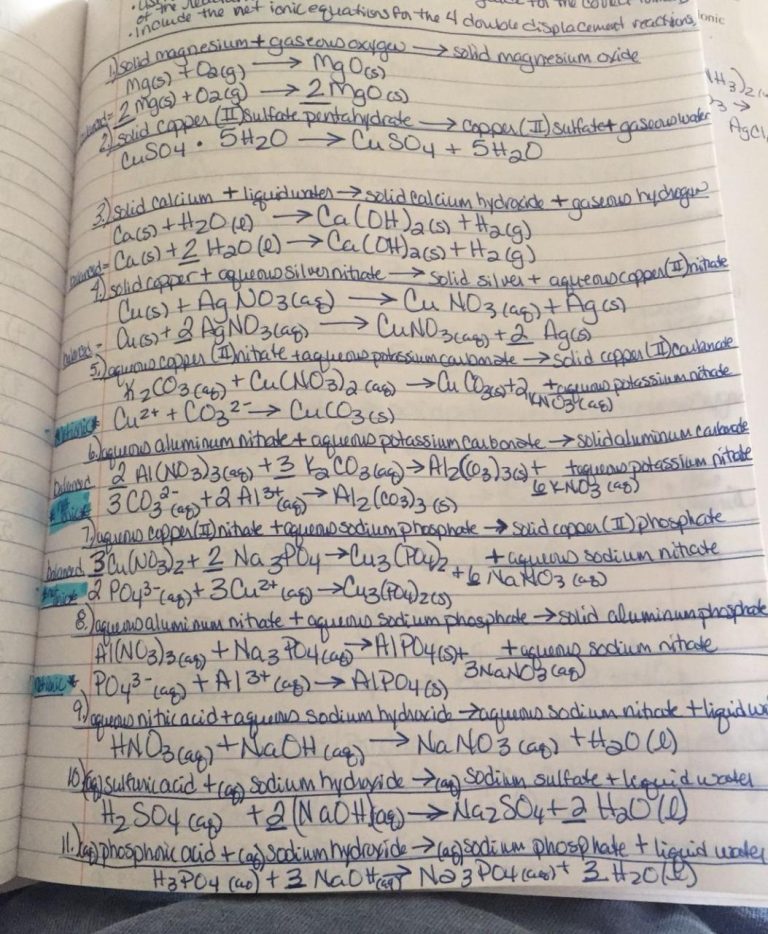 of the
• Include the net ionic equations for the 4 double displacement reactions, ionic
1.) solid magnesium + gaseous oxygen → solid magnesium oxide
Mg(s) + O2(g) → MgO(s)
balanced= 2 Mg(s) + O2(g) → 2 MgO(s)
2.) solid copper (II) sulfate pentahydrate → copper (II) sulfate + gaseous water
CuSO4 • 5H2O → CuSO4 + 5H2O
3.) solid calcium + liquid water → solid calcium hydroxide + gaseous hydrogen
Ca(s) + H2O(l) → Ca(OH)2(s) + H2(g)
balanced= Ca(s) + 2 H2O(l) → Ca(OH)2(s) + H2(g)
4.) solid copper + aqueous silver nitrate → solid silver + aqueous copper (II) nitrate
Cu(s) + AgNO3(aq) → CuNO3(aq) + Ag(s)
balanced= Cu(s) + 2 AgNO3(aq) → CuNO3(aq) + 2 Ag(s)
5.) aqueous copper (II) nitrate + aqueous potassium carbonate → solid copper (II) carbonate
+ aqueous potassium nitrate
K2CO3(aq) + Cu(NO3)2(aq) → CuCO3(s) + 2 KNO3(aq)
net ionic* Cu2+ + CO3 2- → CuCO3(s)
6.) aqueous aluminum nitrate + aqueous potassium carbonate → solid aluminum carbonate
+ aqueous potassium nitrate
balanced 2 Al(NO3)3(aq) + 3 K2CO3(aq) → Al2(CO3)3(s) + 6 KNO3(aq)
3 CO3 2-(aq) + 2 Al3+(aq) → Al2(CO3)3(s)
7.) aqueous copper (II) nitrate + aqueous sodium phosphate → solid copper (II) phosphate
+ aqueous sodium nitrate
balanced 3 Cu(NO3)2 + 2 Na3PO4 → Cu3(PO4)2 + 6 NaNO3(aq)
2 PO4 3-(aq) + 3 Cu2+(aq) → Cu3(PO4)2(s)
8.) aqueous aluminum nitrate + aqueous sodium phosphate → solid aluminum phosphate
+ aqueous sodium nitrate
Al(NO3)3(aq) + Na3PO4(aq) → AlPO4(s) + 3NaNO3(aq)
net ionic* PO4 3-(aq) + Al3+(aq) → AlPO4(s)
9.) aqueous nitric acid + aqueous sodium hydroxide → aqueous sodium nitrate + liquid
HNO3(aq) + NaOH(aq) → NaNO3(aq) + H2O(l)
10.) (aq) sulfuric acid + (aq) sodium hydroxide → (aq) sodium sulfate + liquid water
H2SO4(aq) + 2(NaOH)(aq) → Na2SO4 + 2 H2O(l)
11.) (aq) phosphoric acid + (aq) sodium hydroxide → (aq) sodium phosphate + liquid water
H3PO4(aq) + 3 NaOH(aq) → Na3PO4(aq) + 3 H2O(l)
AgCl